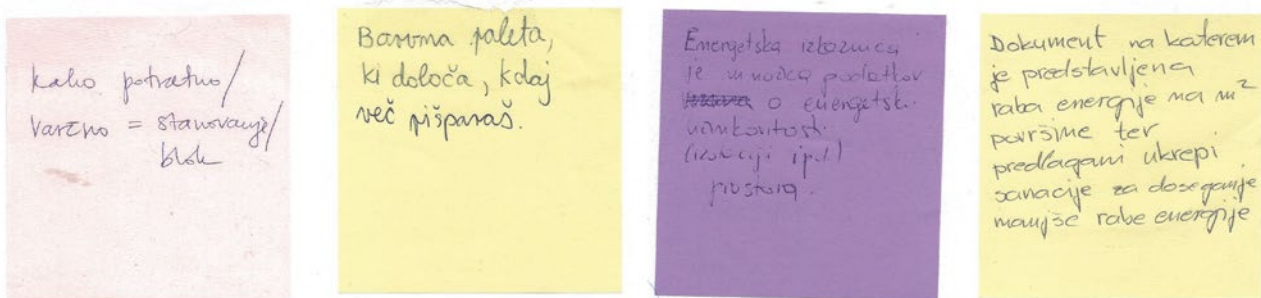 kako potratno/
varčno = stanovanje/
blok
Barvna paleta,
ki določa, kdaj
več pišparaš.
Energetska izkaznica
je množica podatkov
o energetski
učinkovitosti
(izolaciji ipd.)
prostora.
Dokument na katerem
je predstavljena
raba energije na m²
površine ter
predlagani ukrepi
sanacije za doseganje
manjše rabe energije